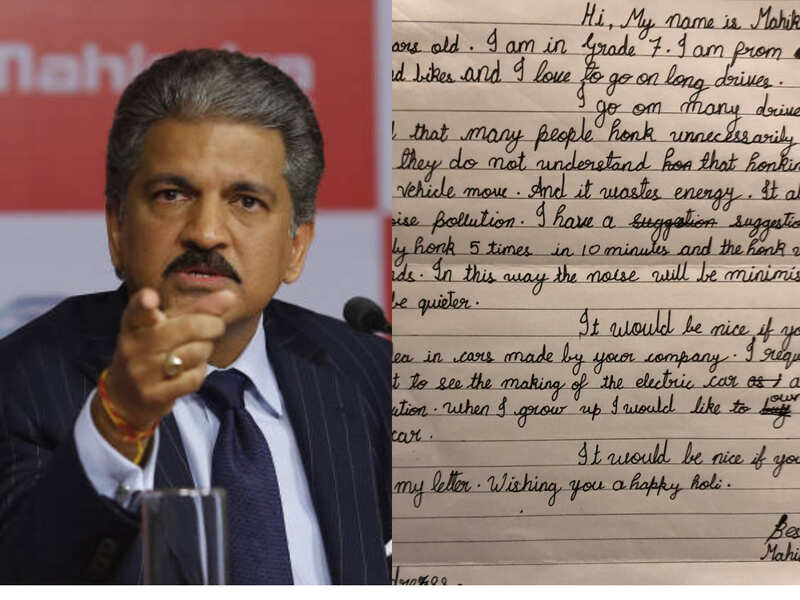 Mahindra
Hi, My name is Mahik
ars old. I am in Grade 7. I am from
d bikes and I love to go on long drives.
I go om many drive
that many people honk unnecessarily
they do not understand hon that honkin
vehicle move. And it wastes energy. It al
oise pollution. I have a suggestion suggestio
ly honk 5 times in 10 minutes and the honk
nds. In this way the noise will be minimis
be quieter.
It would be nice if yo
ea in cars made by your company. I requ
t to see the making of the electric car as I a
ution. When I grow up I would like to buy own
car.
It would be nice if you
my letter. Wishing you a happy holi.
Bes
Mahi